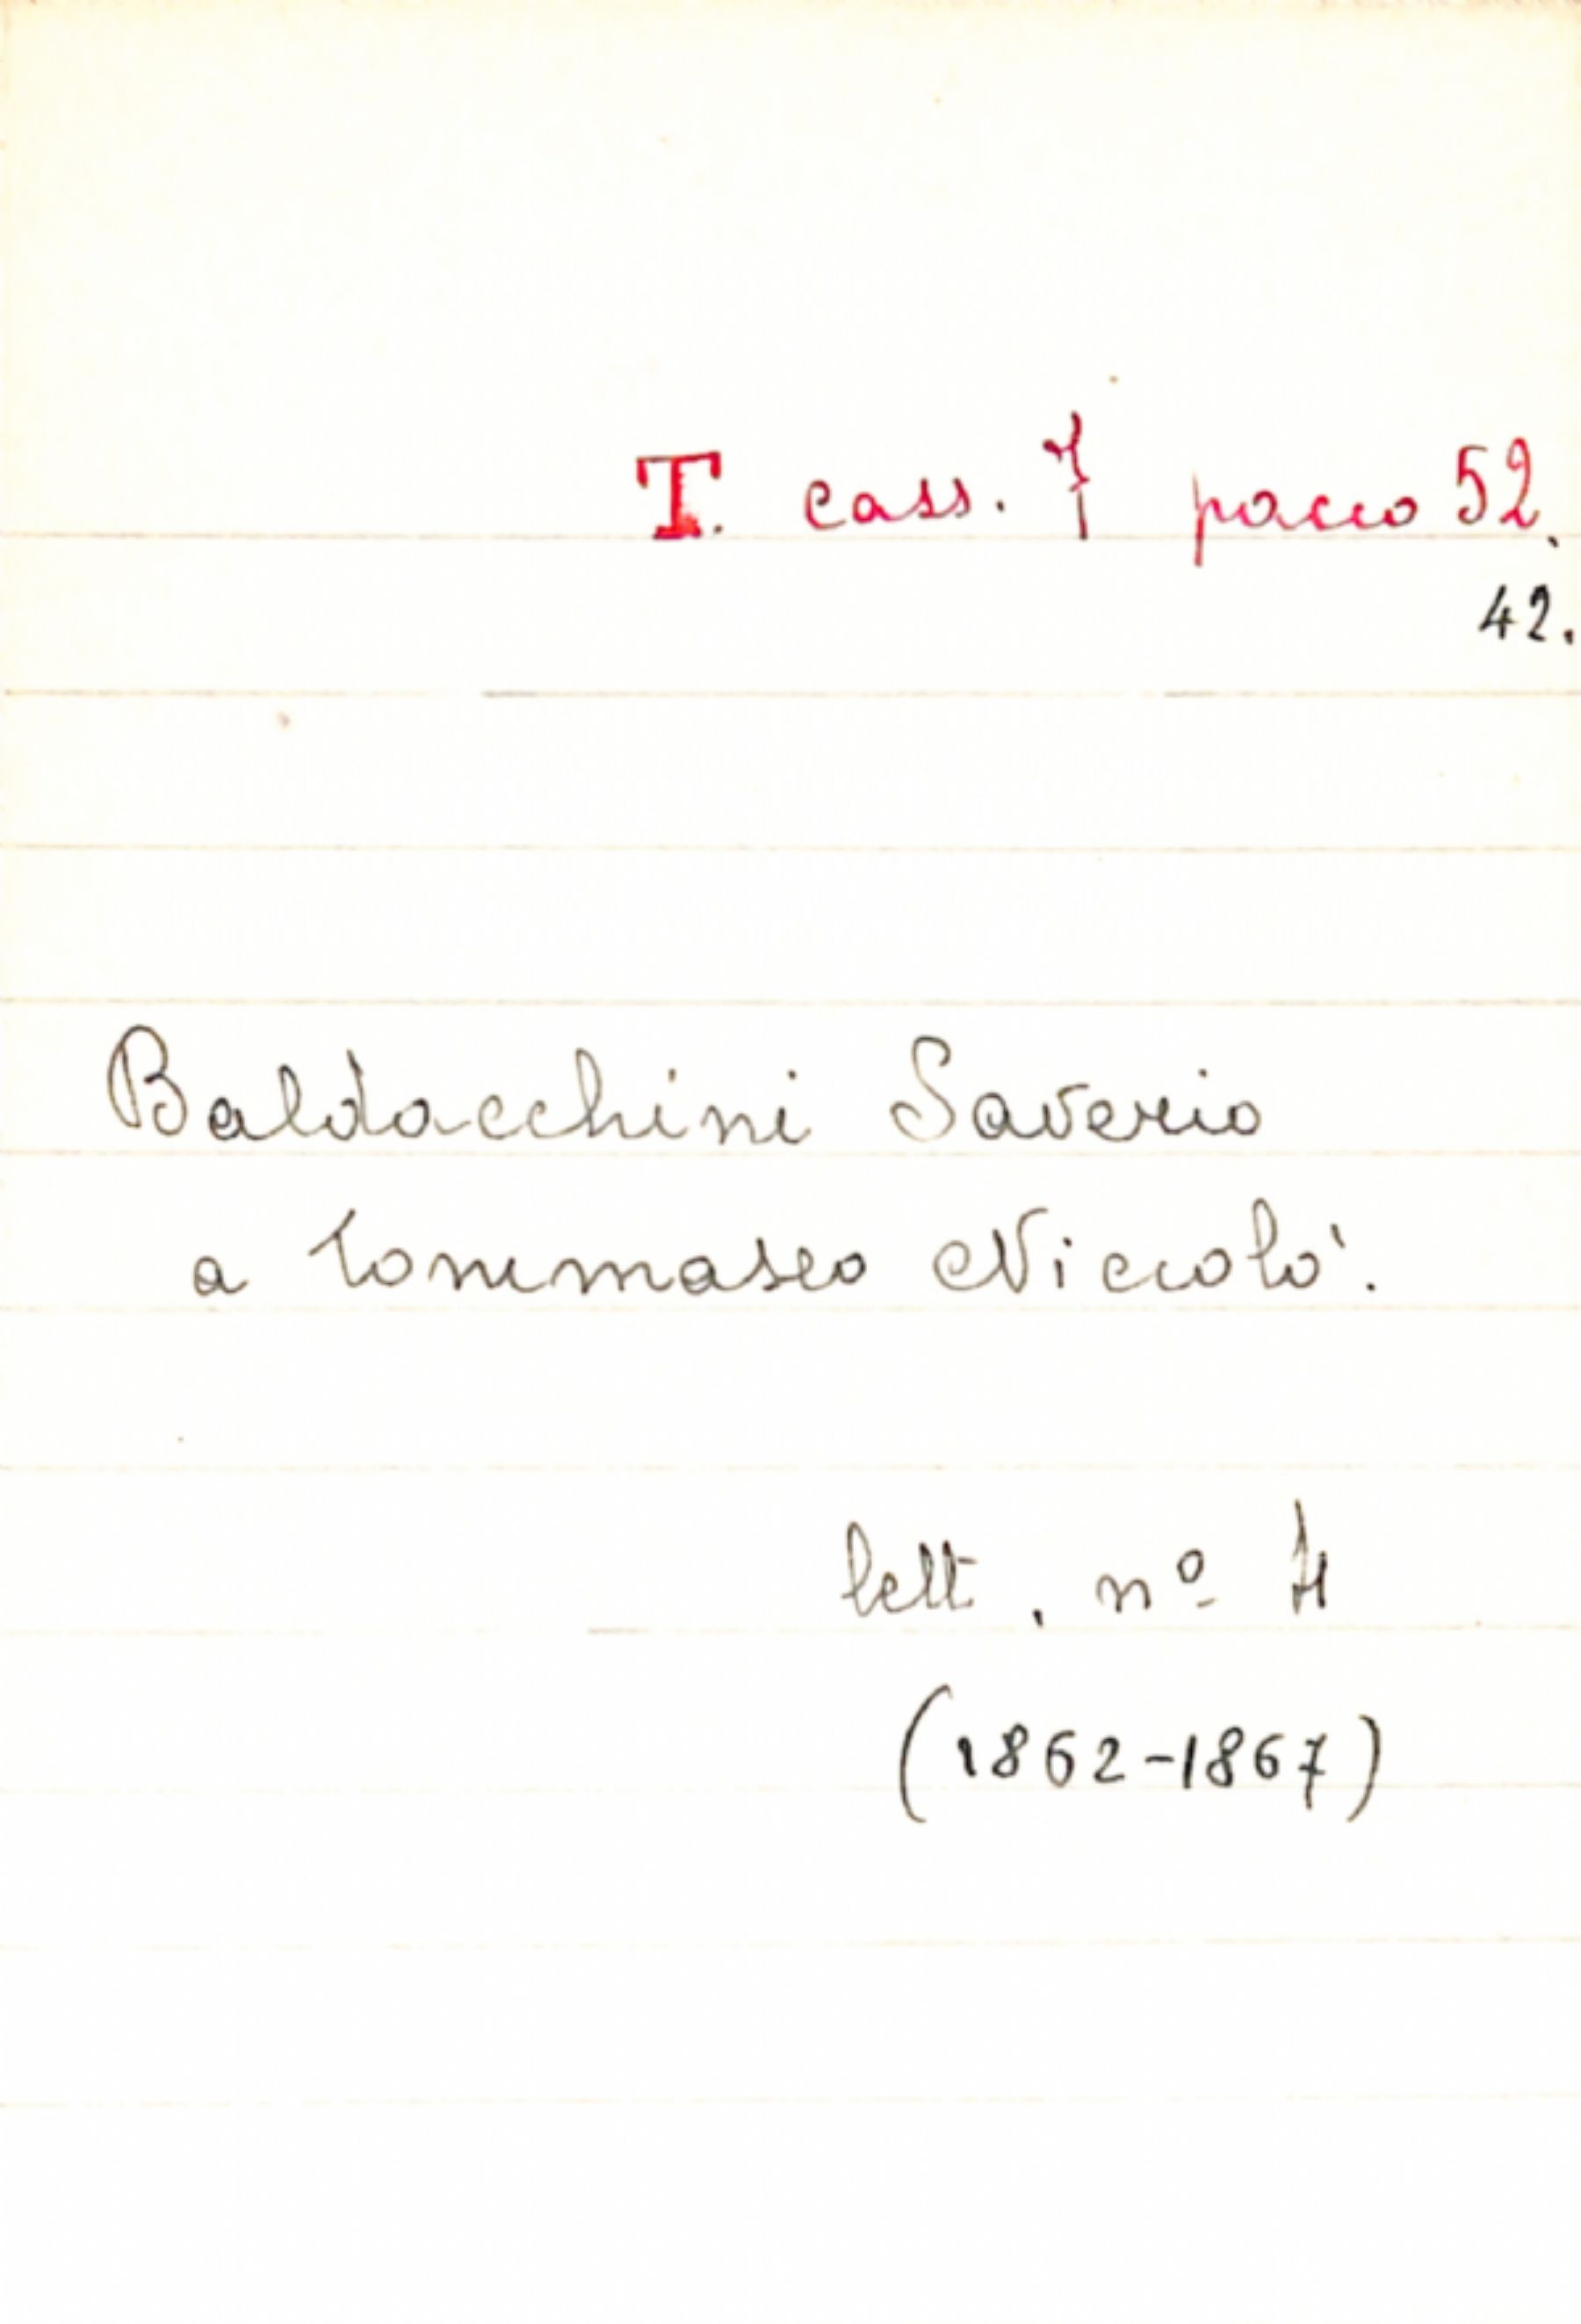 T. cass. 7 pacco 52.
42.
Baldacchini Saverio
a Tommaseo Niccolò.
lett. nº 4
(1862-1867)